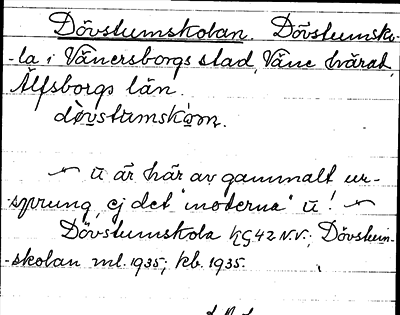 Dövstumskolan. Dövstumsko-
-la i Vänersborgs stad, Väne härad,
Älfsborgs län.
dövstumskon.
~ u är här av gammalt ur-
sprung, ej det "moderna" u! ~
Dövstumskola KG42 N.V.; Dövstum-
-skolan ml. 1935; kb. 1935.